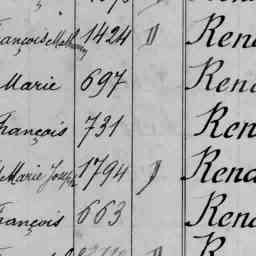 François Mathurin 1424 " Rena
Marie 697 Rena
François 731 Ren
Marie Joseph 1794 " Rena
François 663 Rena